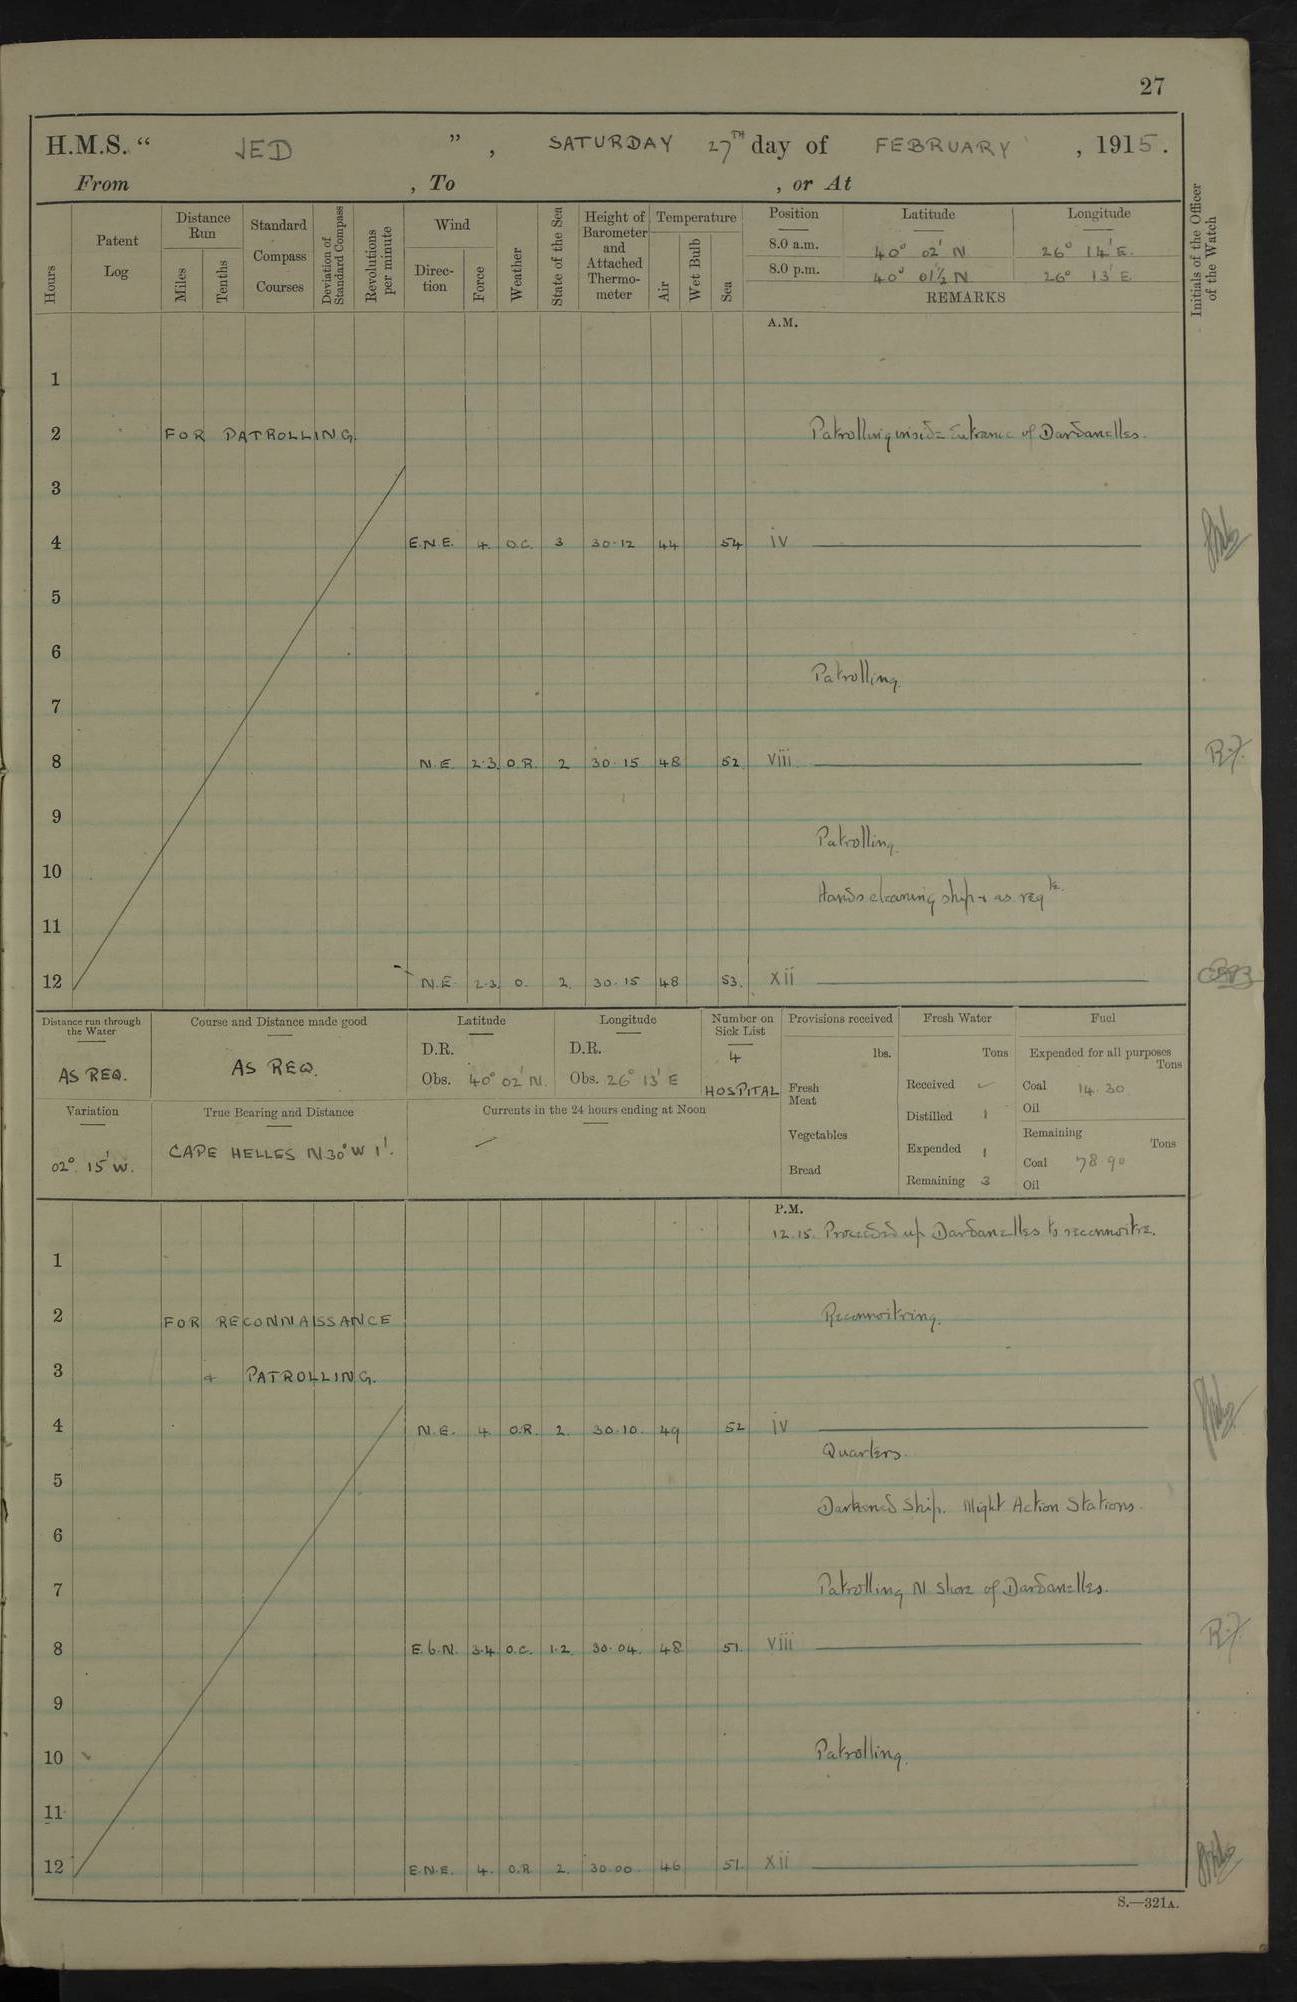 27
H.M.S. “ JED ” , SATURDAY 27TH day of FEBRUARY , 1915.
From , To , or At
Hours
Patent Log
Distance Run
Miles
Tenths
Standard Compass Courses
Deviation of Standard Compass
Revolutions per minute
Wind
Direc- tion
Force
Weather
State of the Sea
Height of Barometer and Attached Thermo- meter
Temperature
Air
Wet Bulb
Sea
Position Latitude Longitude
8.0 a.m. 40° 02' N 26° 14' E.
8.0 p.m. 40° 01½ N 26° 13' E.
REMARKS
Initials of the Officer of the Watch
A.M.
1
2 FOR PATROLLING. Patrolling inside Entrance of Dardanelles.
3
4 E.N.E. 4. O.C. 3 30.12 44 54 iv
5
6
Patrolling.
7
8 N.E. 2.3. O.R. 2 30.15 48 52. viii R.J.
9
Patrolling.
10
Hands cleaning ship & as reqte.
11
12 N.E. 2.3. O. 2. 30.15 48 53. xii
Distance run through the Water
AS REQ.
Course and Distance made good
AS REQ.
Latitude
D.R.
Obs. 40° 02' N.
Longitude
D.R.
Obs. 26° 13' E
Number on Sick List
4
HOSPITAL
Provisions received
lbs.
Fresh Meat
Vegetables
Bread
Fresh Water
Tons
Received
Distilled 1
Expended 1
Remaining 3
Fuel
Expended for all purposes
Tons
Coal 14.30
Oil
Remaining
Tons
Coal 78.90
Oil
Variation
02°. 15' W.
True Bearing and Distance
CAPE HELLES N30°W 1'.
Currents in the 24 hours ending at Noon
P.M.
12.15. Proceeded up Dardanelles to reconnoitre.
1
2 FOR RECONNAISSANCE Reconnoitring.
3 + PATROLLING.
4 N.E. 4. O.R. 2. 30.10. 49 52 iv
Quarters.
5
Darkened Ship. Night Action Stations.
6
7 Patrolling N Shore of Dardanelles.
8 E.b.N. 3.4. O.C. 1.2. 30.04. 48 51. viii R.J.
9
10 Patrolling.
11
12 E.N.E. 4. O.R 2. 30.00. 46 51. xii
S.—321A.